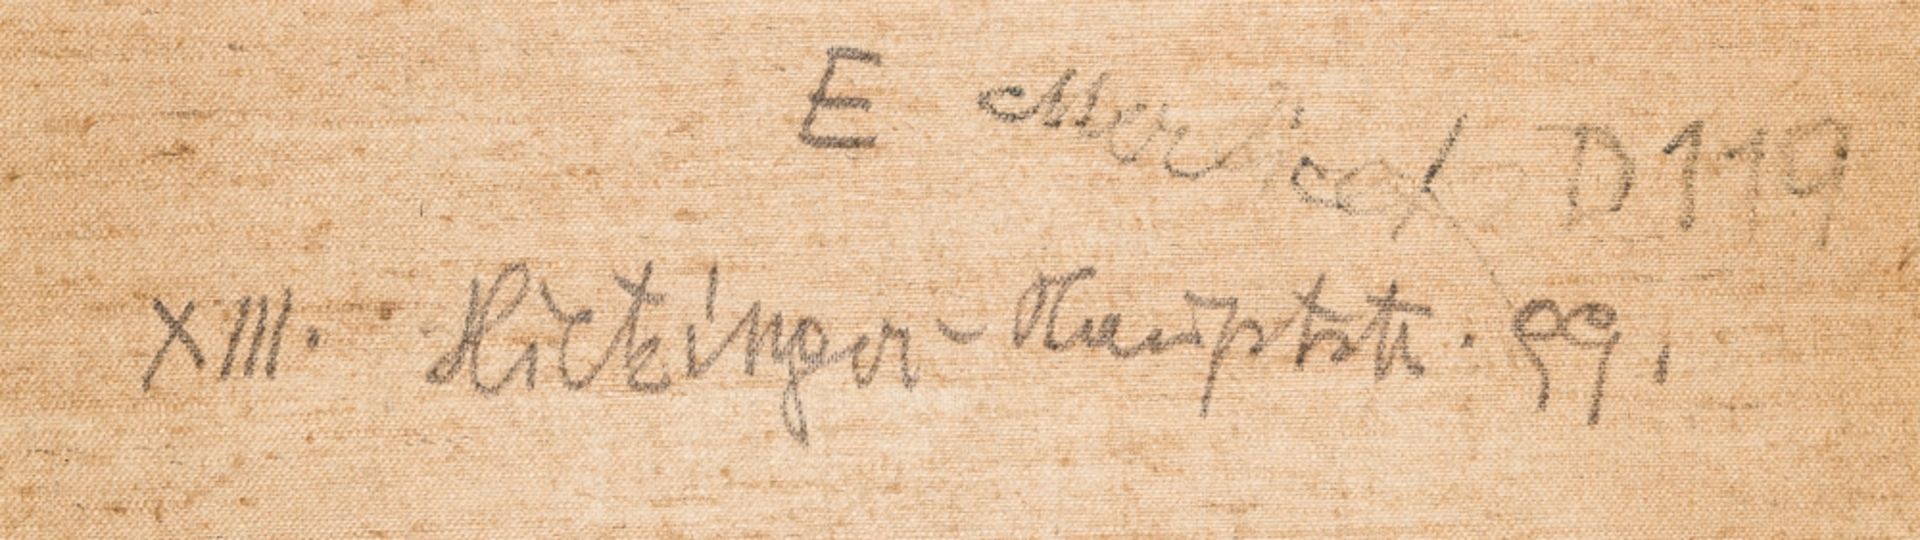 E D 119
XIII. Hietzinger-Hauptstr. 99.